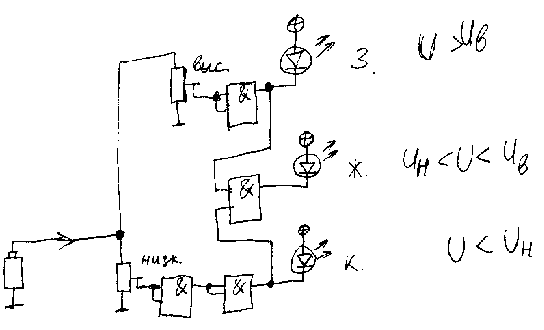 выс.
&
З.
U > Uв
&
Ж.
Uн < U < Uв
низк.
&
&
К.
U < Uн